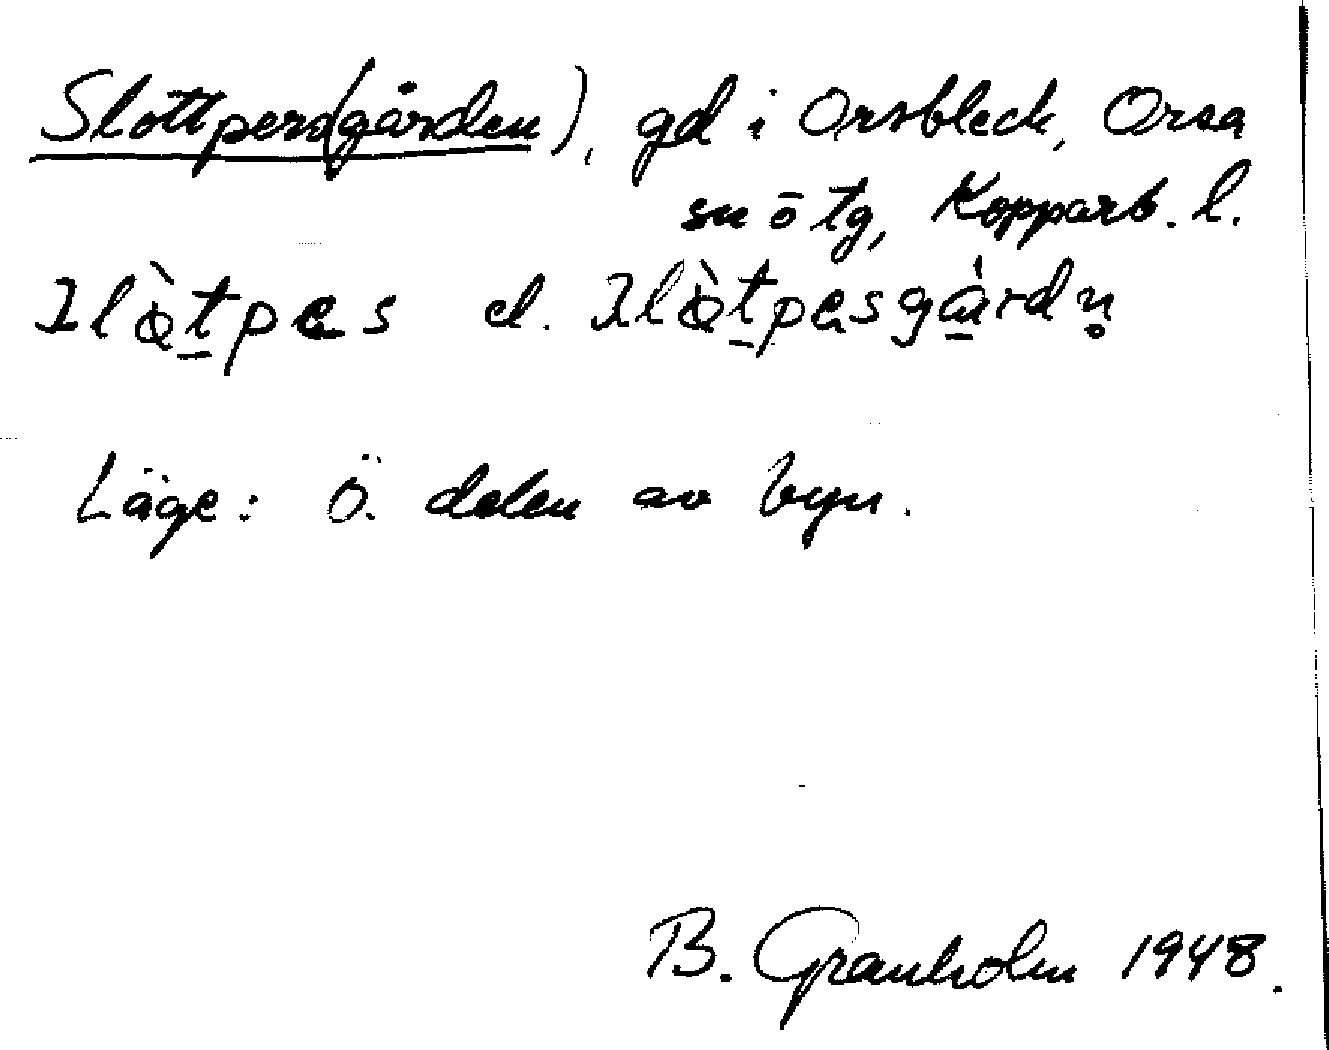 Slottpers(gården), gd i Orsbleck, Orsa
sn o tg, Kopparb. l.
el.
Läge: Ö. delen av byn.
B. Granholm 1948.